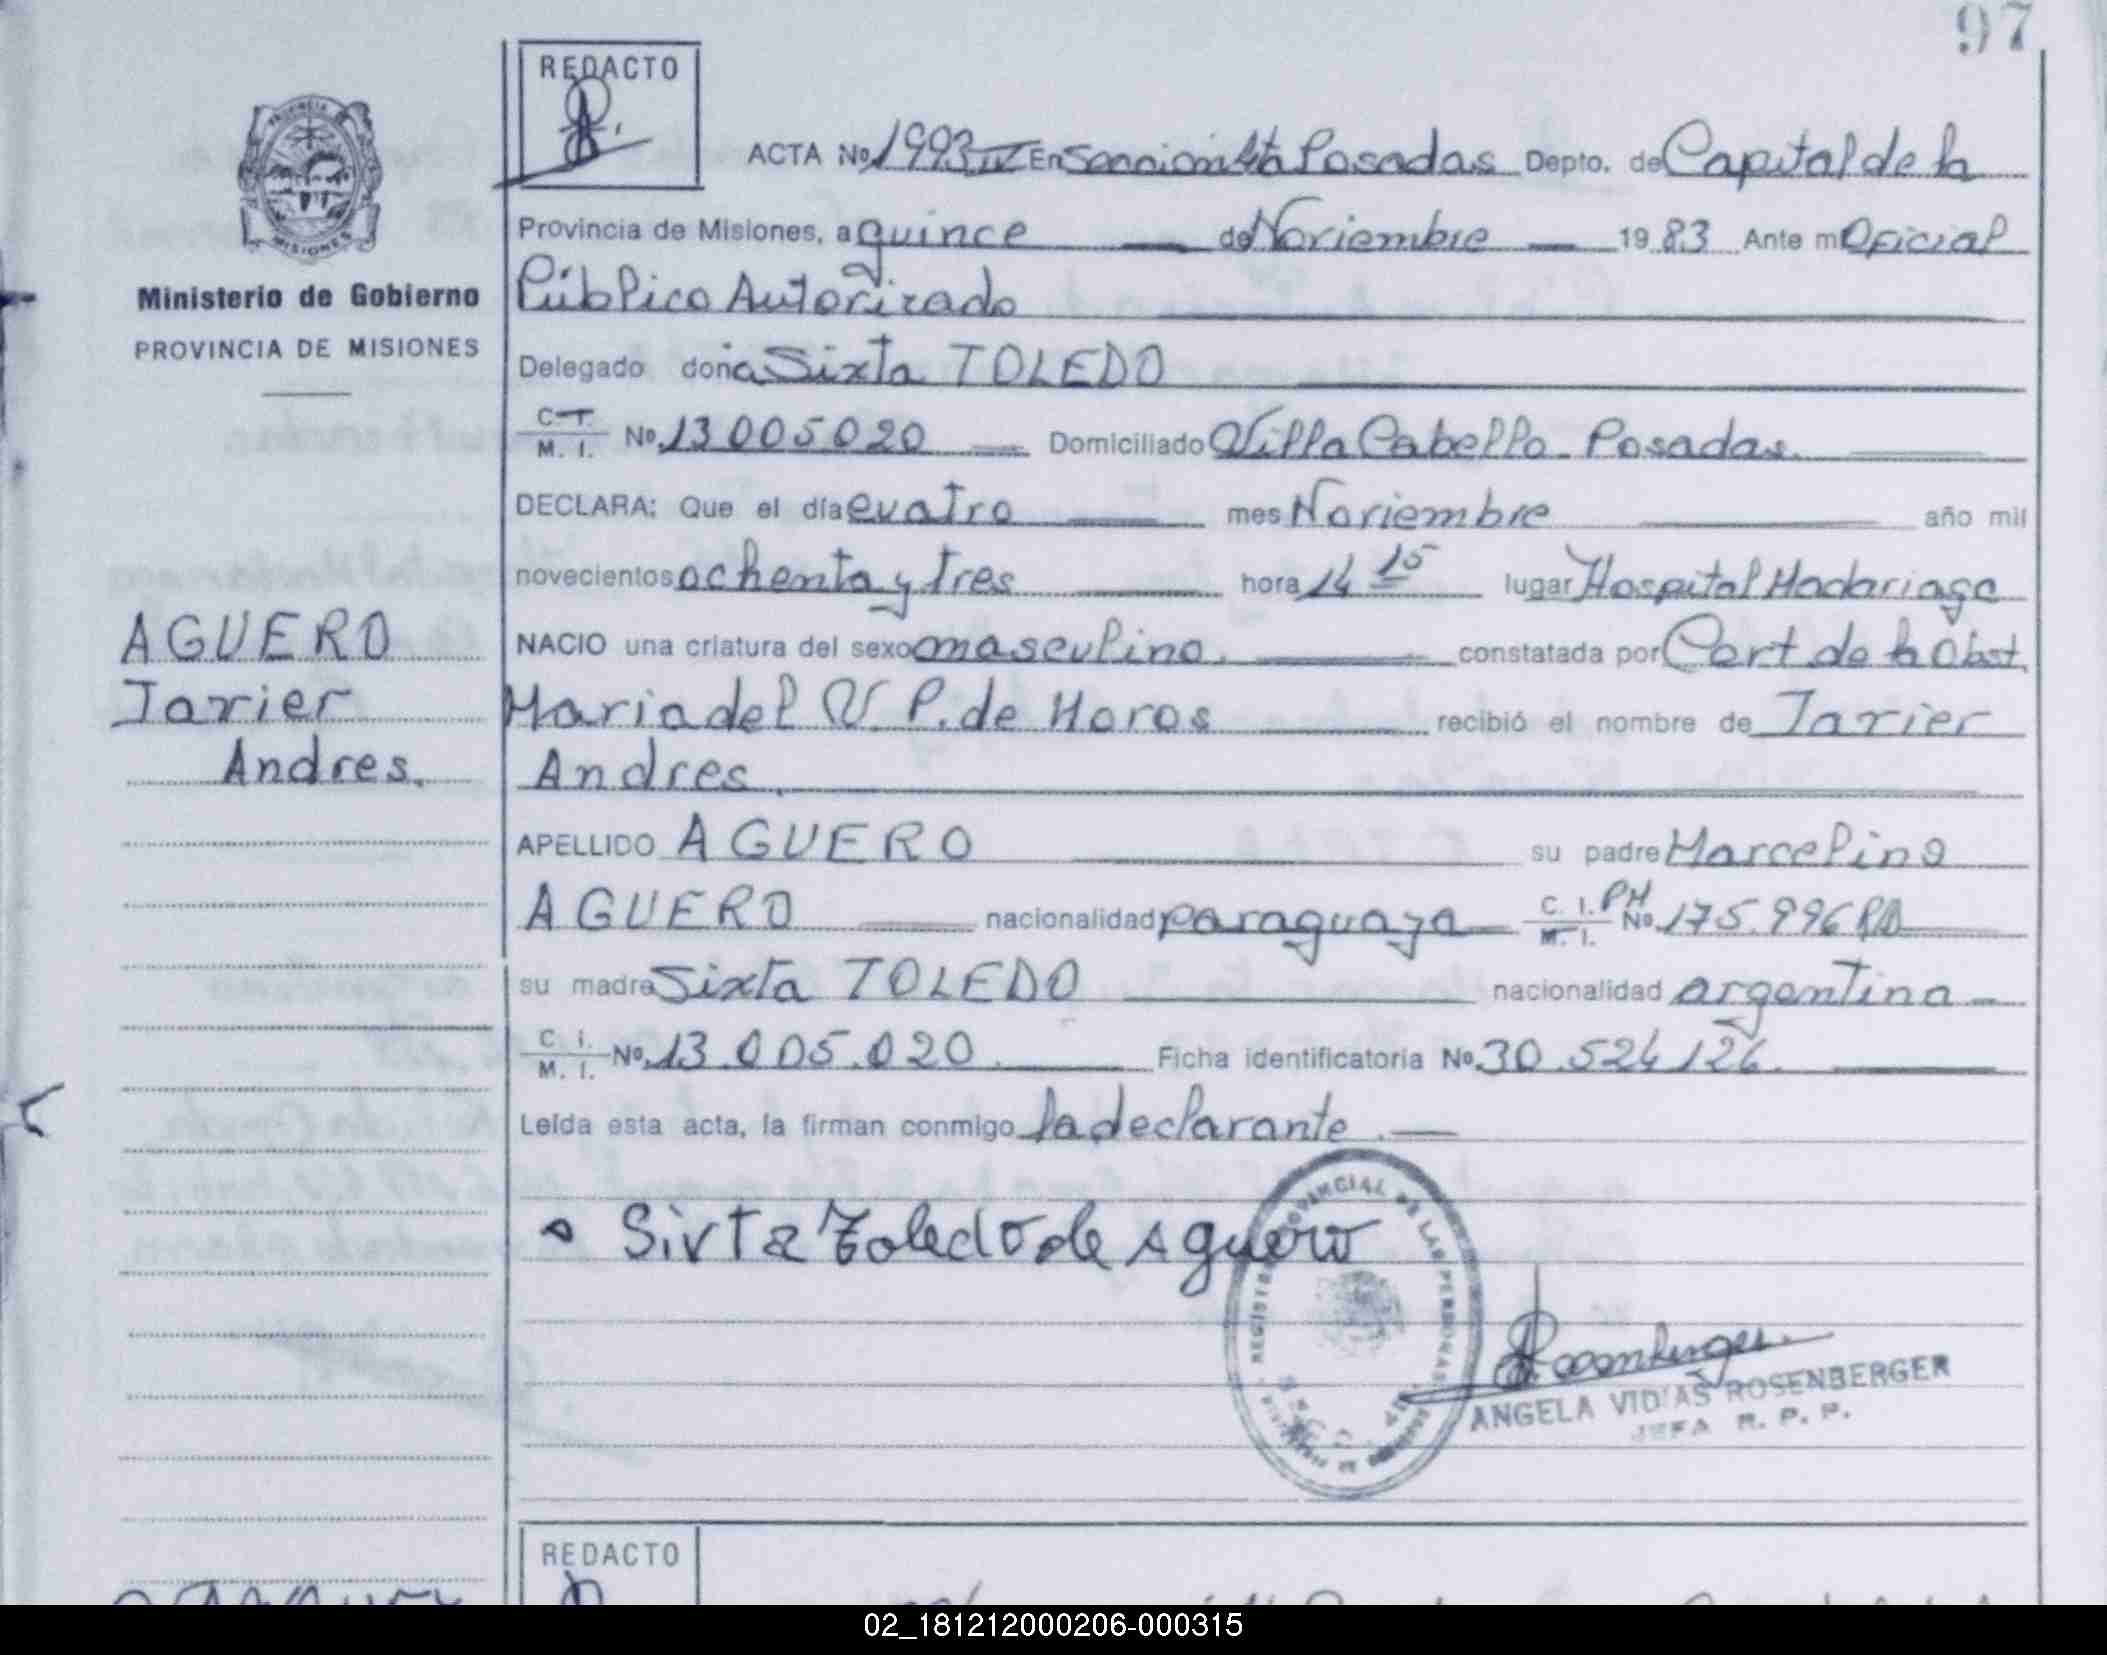 97
REDACTO
ACTA No. 1993 IV En Sección 4ta Posadas Depto. de Capital de la
Provincia de Misiones, a quince de Noviembre 19 83 Ante mi Oficial
Público Autorizado
Ministerio de Gobierno
PROVINCIA DE MISIONES
Delegado doña Sixta TOLEDO
C. I. M. I. No. 13005020 Domiciliado Villa Cabello - Posadas.
DECLARA: Que el día cuatro mes Noviembre año mil
novecientos ochenta y tres hora 14 15 lugar Hospital Madariaga
AGUERO
Javier
Andres.
NACIO una criatura del sexo masculino. constatada por Cert de la Obst.
Maria del V. P. de Moros recibió el nombre de Javier
Andres.
APELLIDO AGUERO su padre Marcelino
AGUERO nacionalidad paraguaya C. I. M. I. No. 175.996
su madre Sixta TOLEDO nacionalidad argentina
C. I. M. I. No. 13.005.020. Ficha identificatoria No. 30.524.126.
Leída esta acta, la firman conmigo la declarante.
Sixta Toledo de Aguero
REGISTRO PROVINCIAL DE LAS PERSONAS
Rosenberger
ANGELA VIDIAS ROSENBERGER
JEFA R. P. P.
REDACTO
02_181212000206-000315